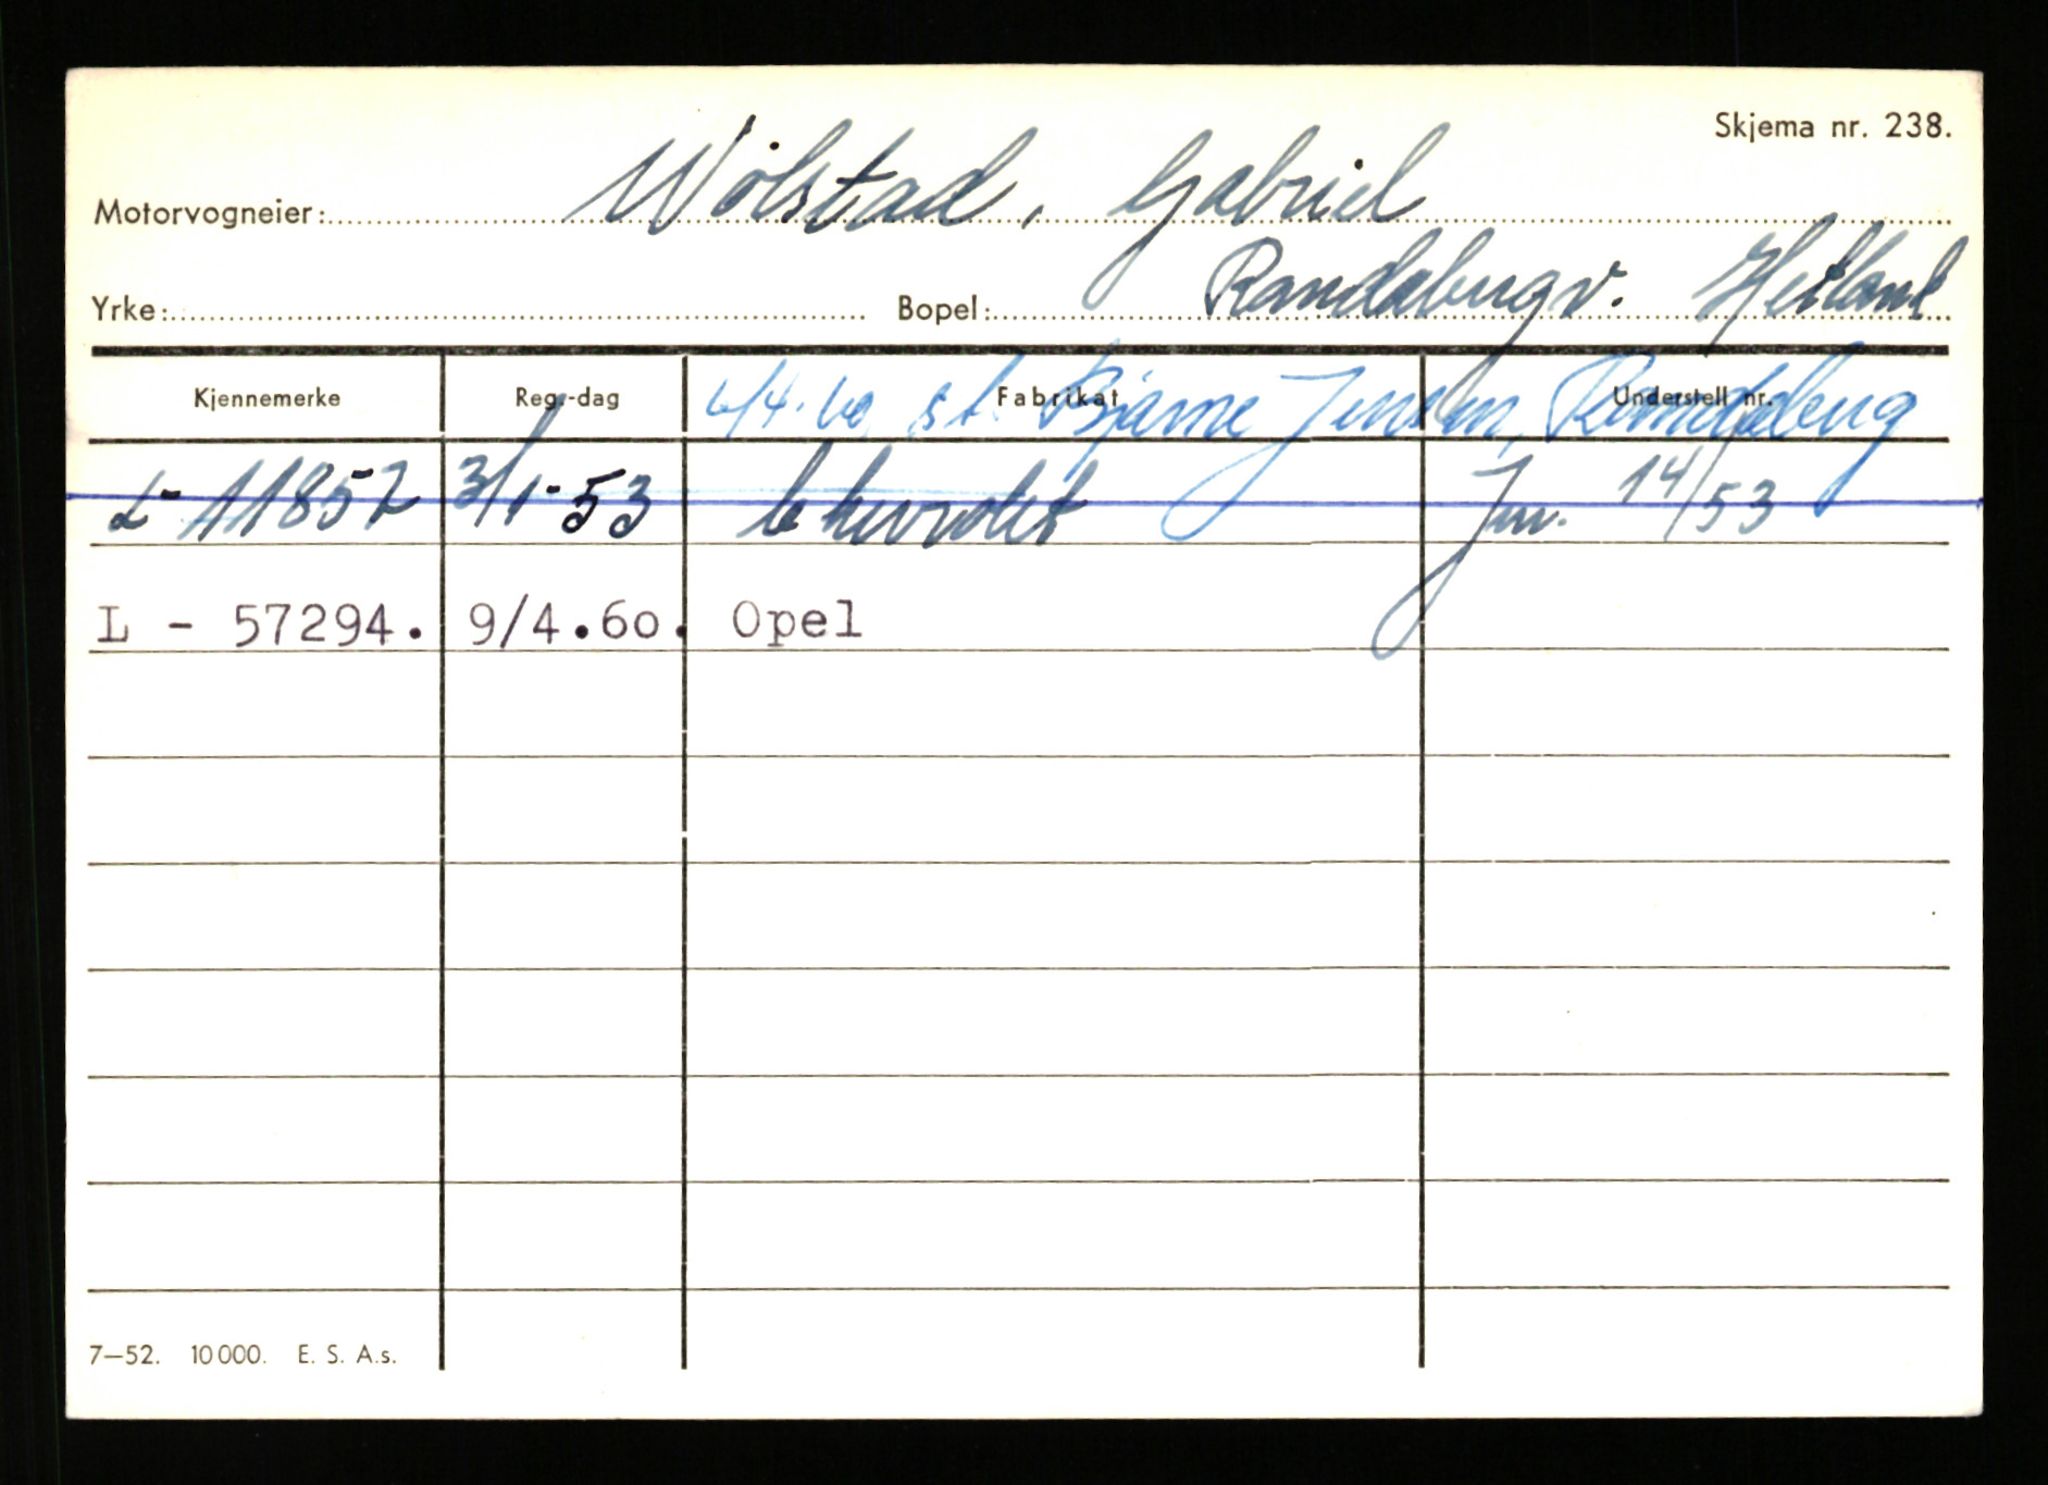 Skjema nr. 238.
Motorvogneier: Wölstad, Gabriel
Yrke: Bopel: Randabergv. Hetland
Kjennemerke Reg.-dag Fabrikat Understell nr.
4/4.60 st. Bjarne Jensen, Randaberg
L-11852 3/1-53 Chevrolet Jnr. 14/53
L - 57294. 9/4.60. Opel
7—52. 10 000. E. S. A.s.